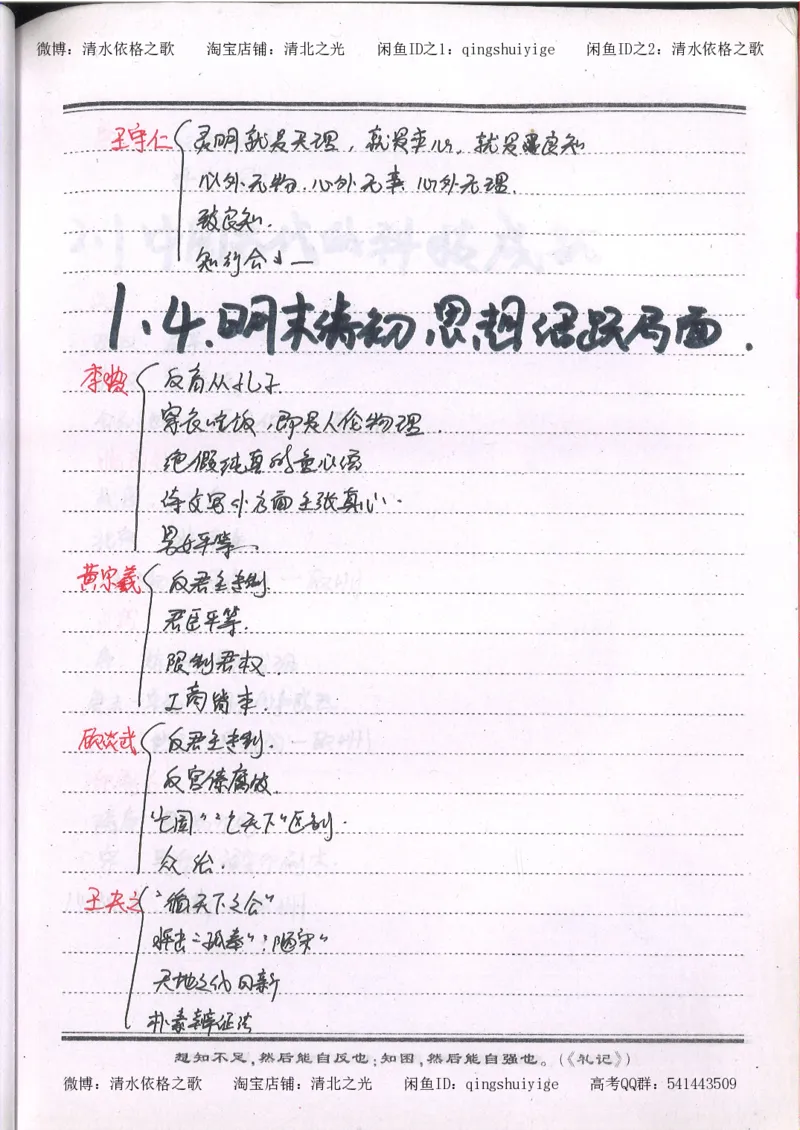 微博：清水依格之歌 淘宝店铺：清北之光 闲鱼ID之1：qingshuiyige 闲鱼ID之2：清水依格之歌
王守仁 灵明就是天理，就是本心，就是良知
心外无物．心外无事 心外无理．
致良知．
知行合一
1.4.明末清初思想活跃局面．
李贽 反盲从孔子
穿衣吃饭，即是人伦物理．
绝假纯真的童心说
诗文写作方面主张真心．
男女平等．
黄宗羲 反君主专制．
君臣平等．
限制君权．
工商皆本．
顾炎武 反君主专制．
反官僚腐败．
"亡国""亡天下"区别．
众治．
王夫之 "循天下之公"
"孤秦""陋宋"
天地之化日新
朴素辩证法
想知不足，然后能自反也；知困，然后能自强也。（《礼记》）
微博：清水依格之歌 淘宝店铺：清北之光 闲鱼ID：qingshuiyige 高考QQ群：541443509